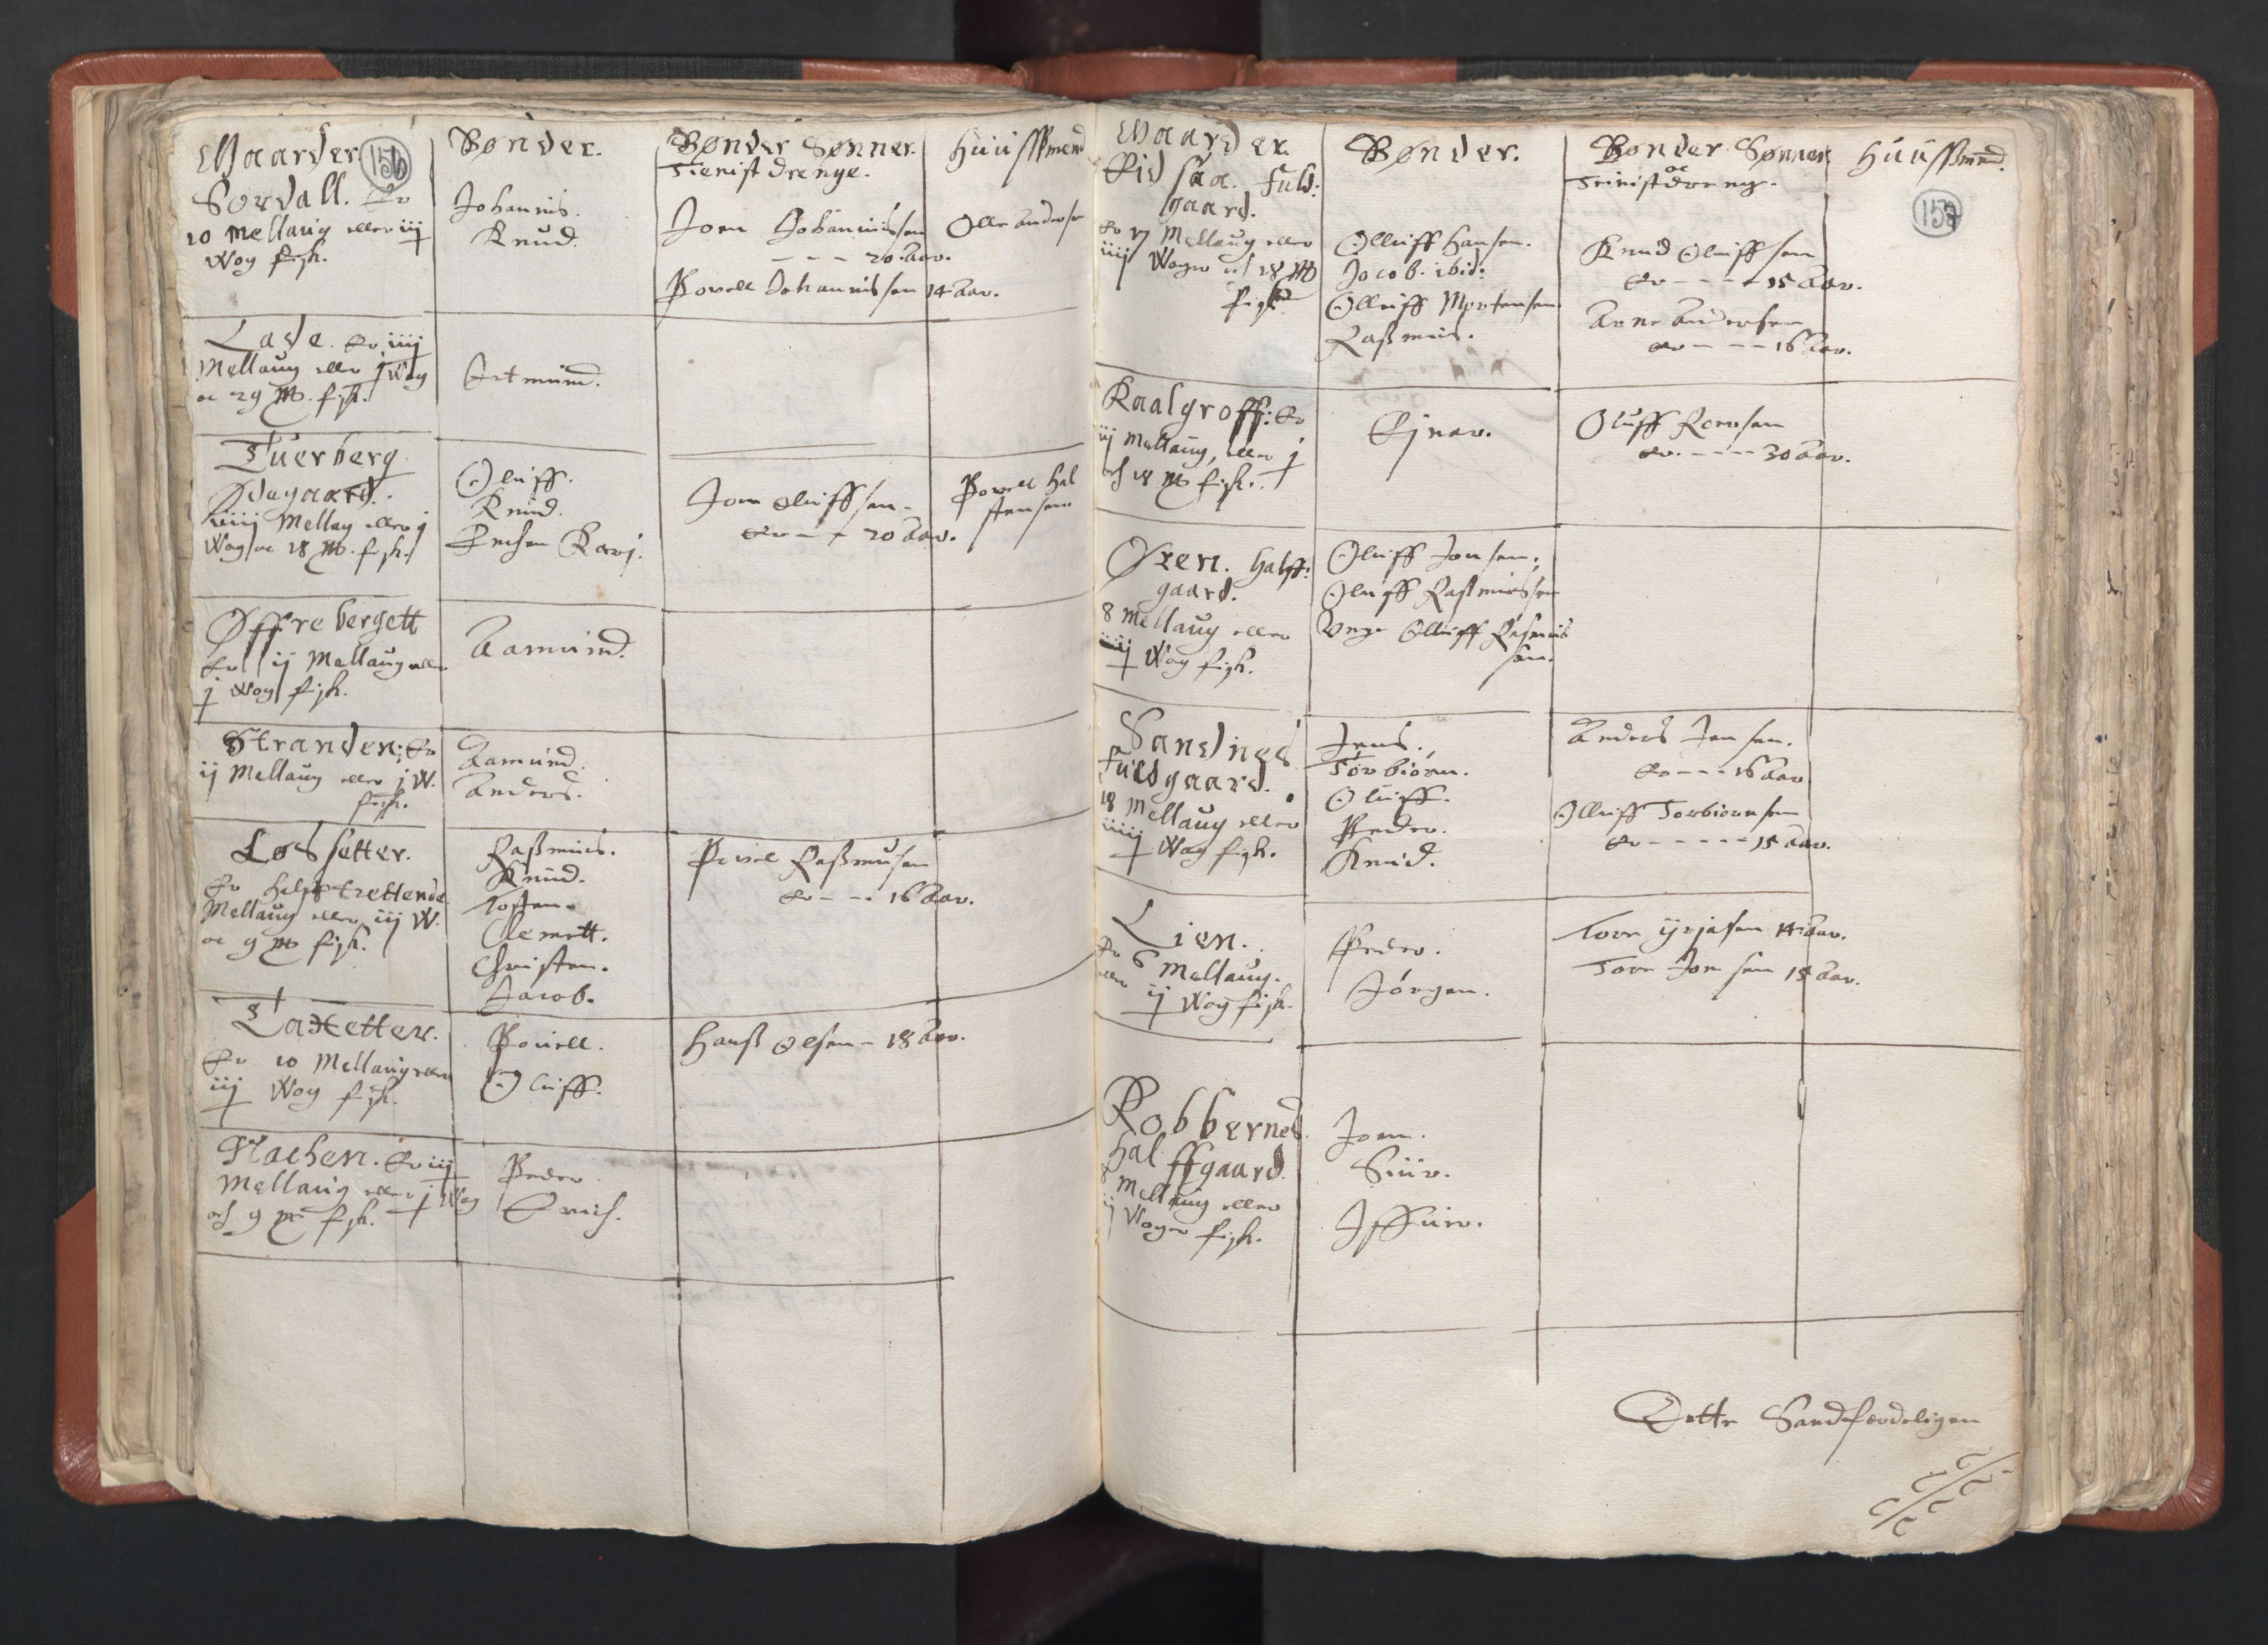 Gaarder
156
Bønder.
Bønder Sønner.
Huussmend
Tienist drenge.
Sordall. Er
10 Mellaug eller iij
Wog fisk.
Johannis.
Knud.
Joen Johannissen
20 Aar.
Povell Johannissen 14 Aar.
Olle Anderse
Lade. Er iiij
Mellaug eller j Wog
oc 29 M. fisk.
Artmund.
Tuerberg
Ødegaard.
iiij Mellag eller j
Wog oc 18 M. fisk.
Oluff.
Knud.
Enken Kari.
Jon Oluffsen
Er 20 Aar.
Povell Hal
stensen
Øffrebergett
Er ij Mellaug eller
j Wog fisk.
Aamund.
Stranden: Er
ij Mellaug eller j W.
fisk.
Aamund.
Anders.
Løssetter.
Er halftrettende
Mellaug eller iij W.
oc 9 M fisk.
Rassmus.
Knud.
Tosten.
Clemitt.
Christen.
Jacob.
Povel Rassmusen
Er 16 Aar.
Taxetter.
Er 10 Mellaug eller
iij Wog fisk.
Povell.
Oluff.
Hanss Olsen 18 Aar.
Nachen. Er iij
Mellaug eller j Wog
och 9 M fisk.
Peder.
Erich.
Gaarder
Bønder.
Bønder Sønner
Huussmend.
oc
Tienist drenge.
157
Eidsaa. Fuld:
gaard.
Er 17 Mellaug eller
iiij Woger 18 M
fisk
Olluff Hansen.
Jocob ibid:
Olluff Mortensen
Rassmus.
Knud Oluffsen
Er 15 Aar.
Arne Andersen
Er 16 Aar.
Kaalgroff: Er
iij Mellaug, eller j
och 18 M fisk.
Ejnar.
Oluff Roersen
Er 30 Aar.
Øren. Halff:
gaard.
8 Mellaug eller
iij Wog fisk.
Oluff Jonsen.
Oluff Rasmussen
Unge Olluff Rasmus
sen.
Sandnes
Fuldgaard.
18 Mellaug eller
iiiij Wog fisk.
Jens.
Torbiørn.
Oluff.
Peder.
Knud.
Anders Jensen.
Er 16 Aar
Olluff Torbiørnsen
Er 15 Aar.
Lien.
Er 6 Mellaug.
eller ij Wog fisk.
Peder.
Jørgen.
Tore 14 Aar.
Tore Jonsen 18 Aar.
Robbernes
Halffgaard
8 Mellaug eller
ij Woger fisk.
Joen.
Siur.
Iffuer.
Dette Sandferdeligen